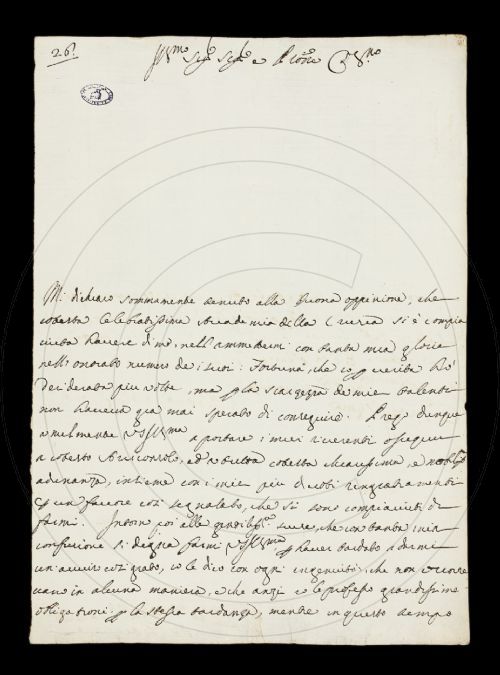 26.
Ill.mo Sig.r Sig.r e P.rone Col.mo
Mi dichiaro sommamente tenuto alla buona oppinione, che
cotesta Celebratissima Accademia della Crusca si è compia
ciuta havere di me, nell'ammettermi con tanta mia gloria
nell'onorato numero de i suoi: Fortuna, che io p verità hò
desiderata più volte, ma p la scarzezza de miei talenti
non haveva già mai sperato di conseguire. Prego dunque
umilmente VSIll.ma a portare i miei riverenti ossequii
a cotesto Arciconsolo, ed a tutta cotesta dottissima, e nobiliss.
adunanza, insieme con i miei più divoti ringratiamenti
p un favore così segnalato, che si sono compiaciuti di
farmi. Intorno poi alle gentiliss.e scuse, che con tanta mia
confusione si degna farmi VSIll.ma, p haver tardato a darmi
un avviso così grato, io le dico con ogni ingenuità, che non occorre
vano in alcuna maniera, e che anzi io le professo grandissime
obligationi p la stessa tardanza, mentre in questo tempo